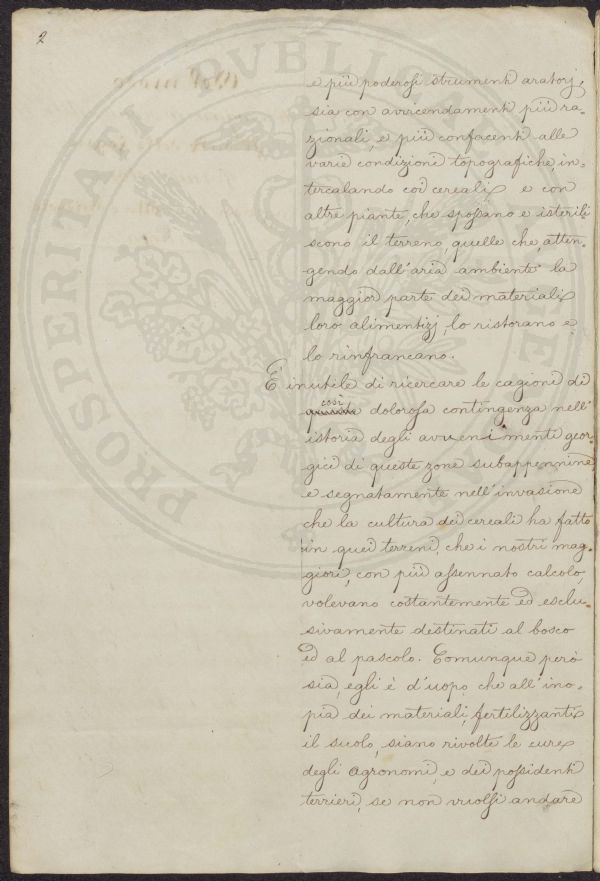 2
e più poderosi strumenti aratorj,
sia con avvicendamenti più ra-
zionali, e più confacenti alle
varie condizioni topografiche, in-
tercalando coi cereali e con
altre piante, che spossano e isterili
scono il terreno, quelle che, atten-
gendo dall'aria ambiente la
maggior parte dei materiali
loro alimentizj, lo ristorano e
lo rinfrancano.
È inutile di ricercare le cagioni di
così
dolorosa contingenza nell'
istoria degli avvenimenti geor-
gici di queste zone subappennine,
e segnatamente nell'invasione
che la cultura dei cereali ha fatto
in quei terreni, che i nostri mag-
giori, con più assennato calcolo,
volevano costantemente ed esclu-
sivamente destinati al bosco
ed al pascolo. Comunque però
sia, egli è d'uopo che all'ino-
pia dei materiali, fertilizzanti
il suolo, siano rivolte le cure
degli agronomi, e dei possidenti
terrieri, se non vuolsi andare
PROSPERITATI PUBLICAE